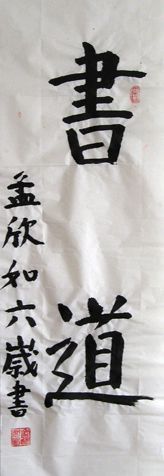 書道
孟欣如六歲書